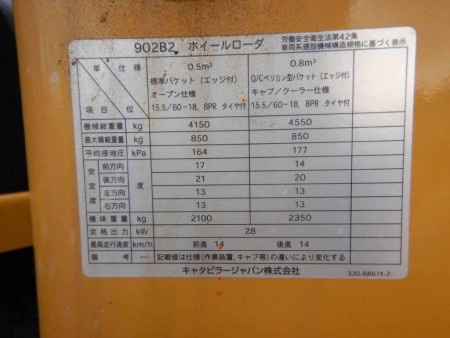 902B2 ホイールローダ
労働安全衛生法第42条
車両系建設機械構造規格に基づく表示
単 仕様 0.5m³ 0.8m³
標準バケット(エッジ付) Q/Cペリカン型バケット(エッジ付)
オープン仕様 キャブ/クーラー仕様
項目 位 15.5/60-18, 8PR タイヤ付 15.5/60-18, 8PR タイヤ付
機械総重量 kg 4150 4550
最大積載重量 kg 850 850
平均接地圧 kPa 164 177
安定度 前方向 度 17 14
後方向 21 20
左方向 13 13
右方向 13 13
機体重量 kg 2100 2350
定格出力 kW 28
最高走行速度 km/h 前進 14 後進 14
備考 — 記載値は仕様(作業装置、キャブ等)の違いにより変化する
キャタピラージャパン株式会社
330-6867X-2-